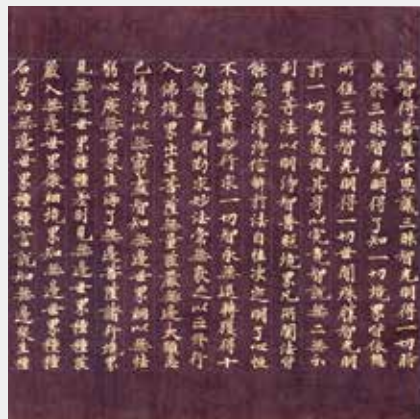 智得菩薩不思議得一切時
重修三昧智光明得了知一切境界智住無
所住三昧智光明得一切世間殊勝智光明
於一切處悉現其身以究竟智說無二無分
別平等法以明淨智普照境界凡所聞法皆
能忍受清淨信解於法自性決定明了心恒
不捨菩薩妙行求一切智永無退轉獲得十
力智慧光明勤求妙法常無厭足以正修行
入佛境界出生菩薩無量莊嚴無邊大願悉
已清淨以無窮盡智知無邊世界網以無怯
弱心度無量衆生海了無邊菩薩諸行境界
見無邊世界種種差別見無邊世界種種莊
嚴入無邊世界微細境界知無邊世界種種
名号知無邊世界種種言說知無邊衆生種